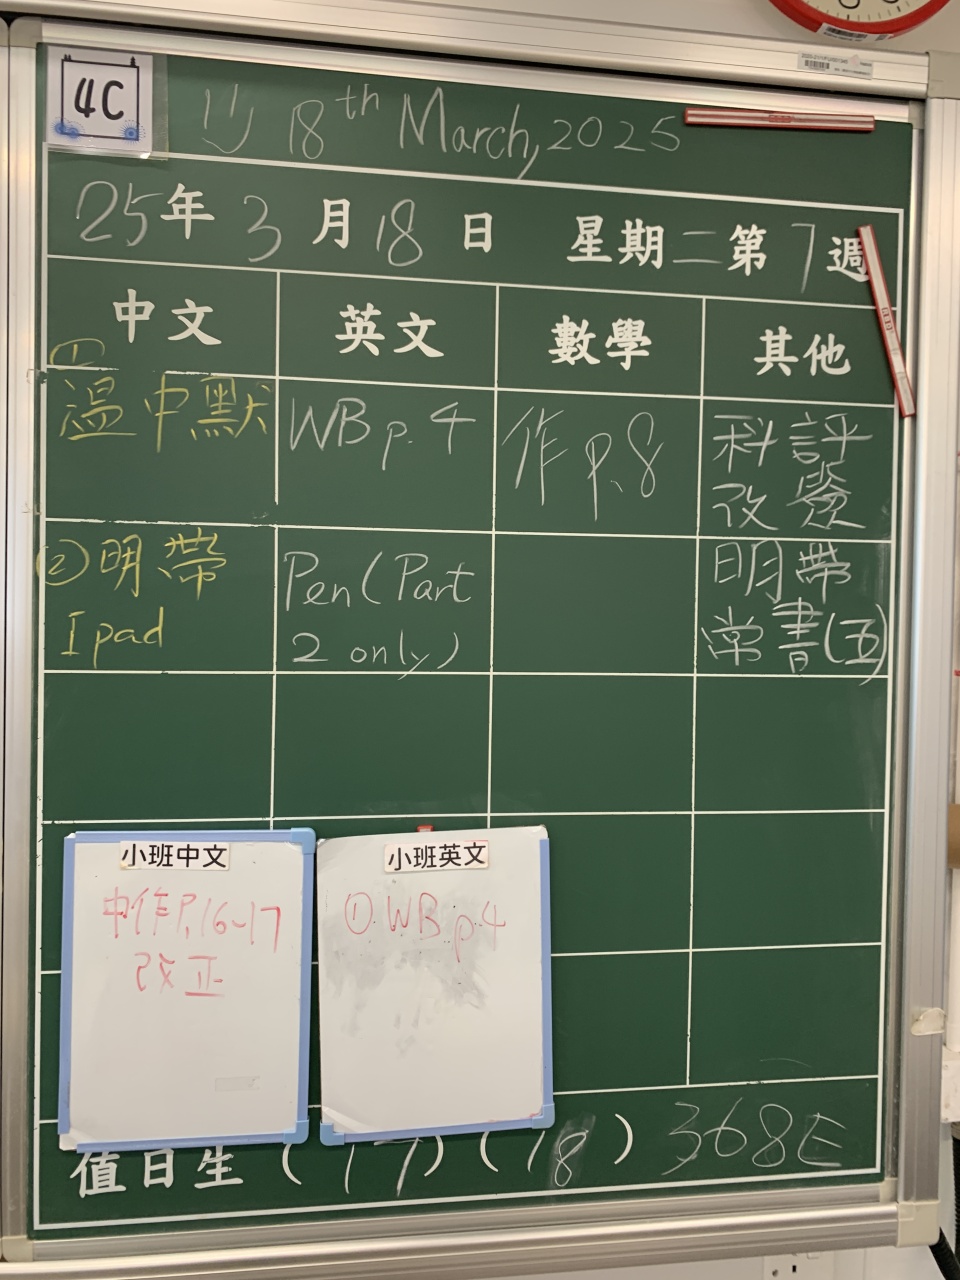 4C
18th March, 2025
25年 3月 18日 星期二 第 7 週
中文 英文 數學 其他
①
溫中默
WB p. 4
作 p.8
科評
改簽
② 明帶
Ipad
Pen (Part
2 only)
明帶
常書(五)
小班中文
中作P.16~17
改正
小班英文
① WB p.4
值日生 (17) (18) 368E